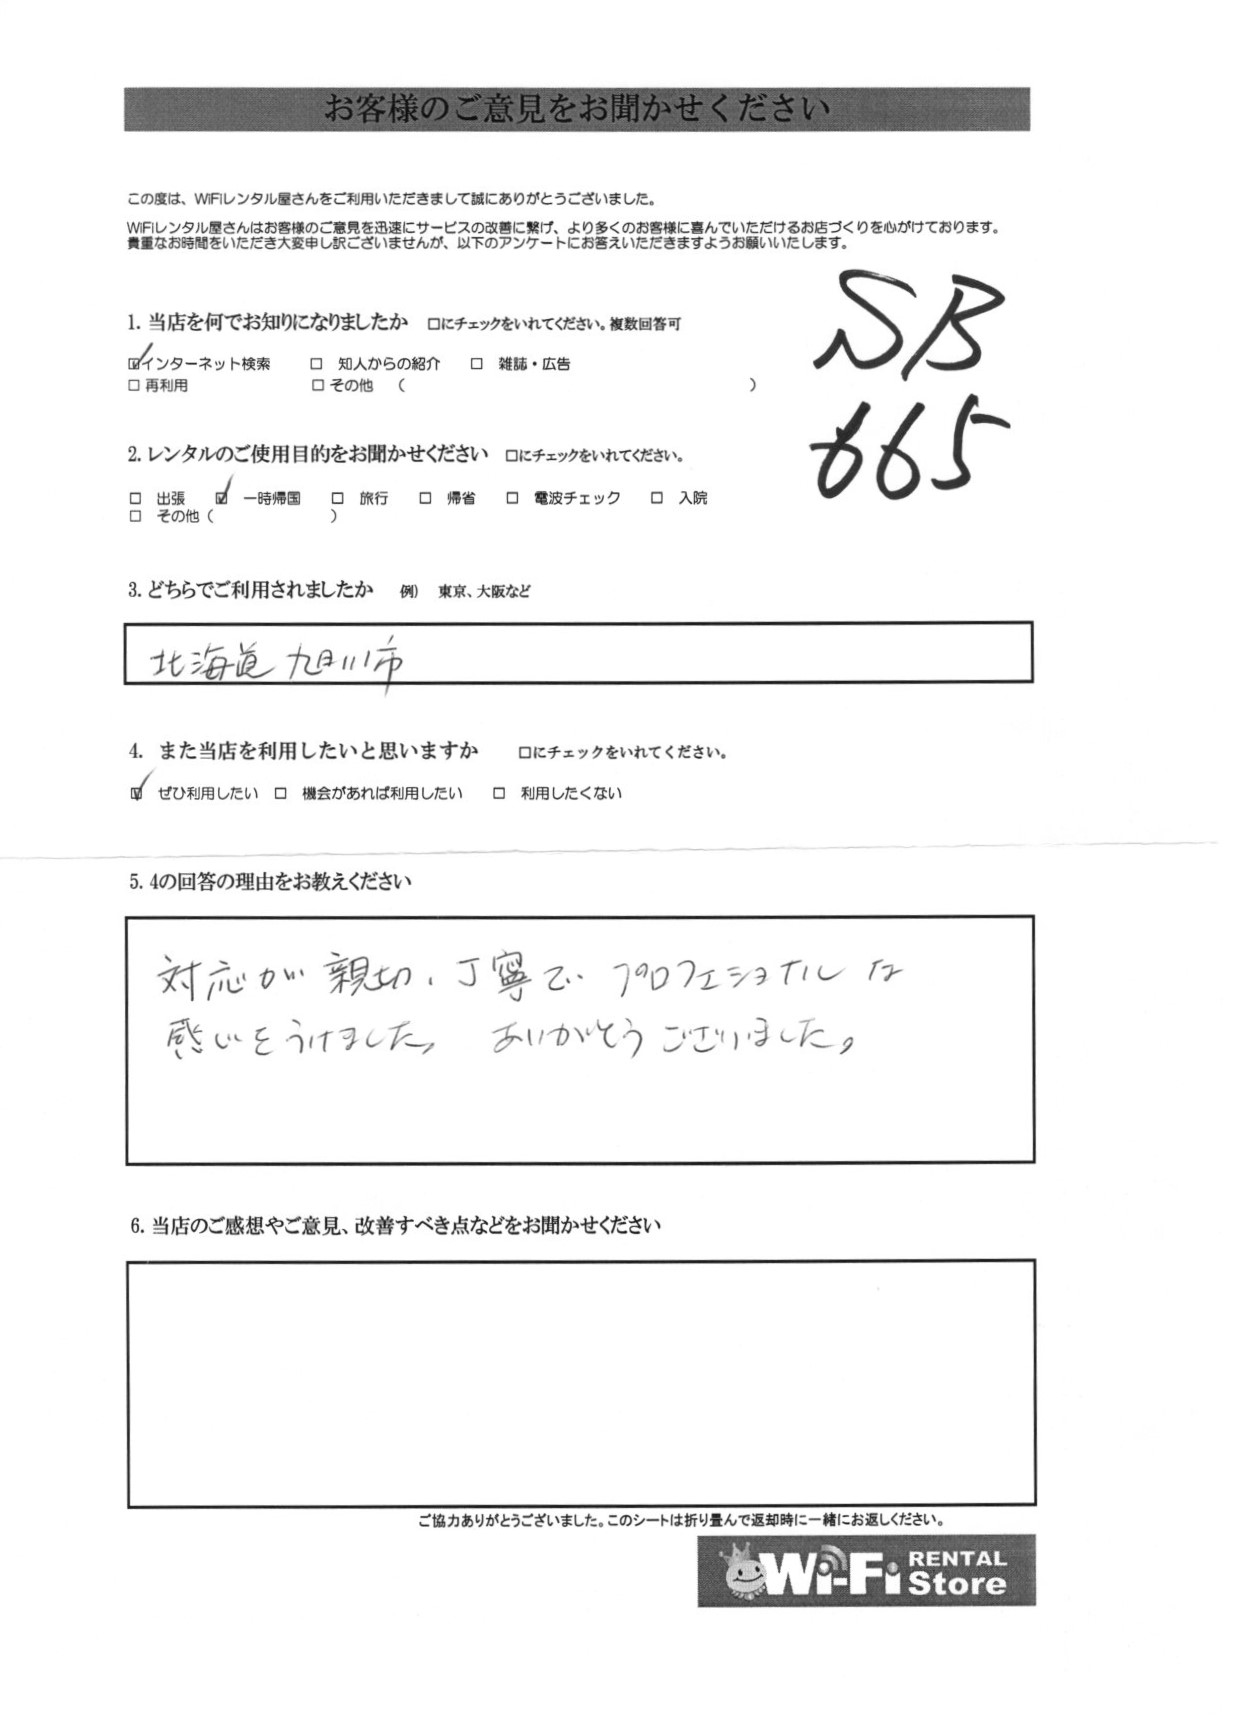 お客様のご意見をお聞かせください
この度は、WiFiレンタル屋さんをご利用いただきまして誠にありがとうございました。
WiFiレンタル屋さんはお客様のご意見を迅速にサービスの改善に繋げ、より多くのお客様に喜んでいただけるお店づくりを心がけております。
貴重なお時間をいただき大変申し訳ございませんが、以下のアンケートにお答えいただきますようお願いいたします。
SB
665
1. 当店を何でお知りになりましたか □にチェックをいれてください。複数回答可
☑インターネット検索 □ 知人からの紹介 □ 雑誌・広告
□ 再利用 □ その他 （ ）
2. レンタルのご使用目的をお聞かせください □にチェックをいれてください。
□ 出張 ☑ 一時帰国 □ 旅行 □ 帰省 □ 電波チェック □ 入院
□ その他（ ）
3. どちらでご利用されましたか 例） 東京、大阪など
北海道 旭川市
4. また当店を利用したいと思いますか □にチェックをいれてください。
☑ ぜひ利用したい □ 機会があれば利用したい □ 利用したくない
5. 4の回答の理由をお教えください
対応が親切、丁寧で プロフェショナルな
感じをうけました。 ありがとうございました。
6. 当店のご感想やご意見、改善すべき点などをお聞かせください
ご協力ありがとうございました。このシートは折り畳んで返却時に一緒にお返しください。
Wi-Fi RENTAL Store